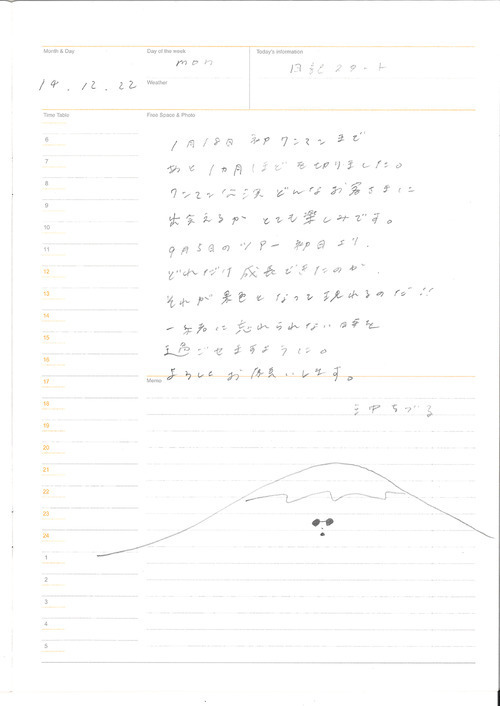 Month & Day
Day of the week
Today's information
mon
日記スタート
14.12.22
Weather
Time Table
Free Space & Photo
1月18日 初ワンマンまで
あと1カ月1まで を切りました。
ワンマン公演 どんなお客さまに
出会えるか とても楽しみです。
9月5日のツアー初日より、
どれだけ成長できたのか、
それが景色となって現れるのだ!!
一生忘れられない時を
過ごせますように。
よろしくお願いします。
Memo
ちづる
6
7
8
9
10
11
12
13
14
15
16
17
18
19
20
21
22
23
24
1
2
3
4
5